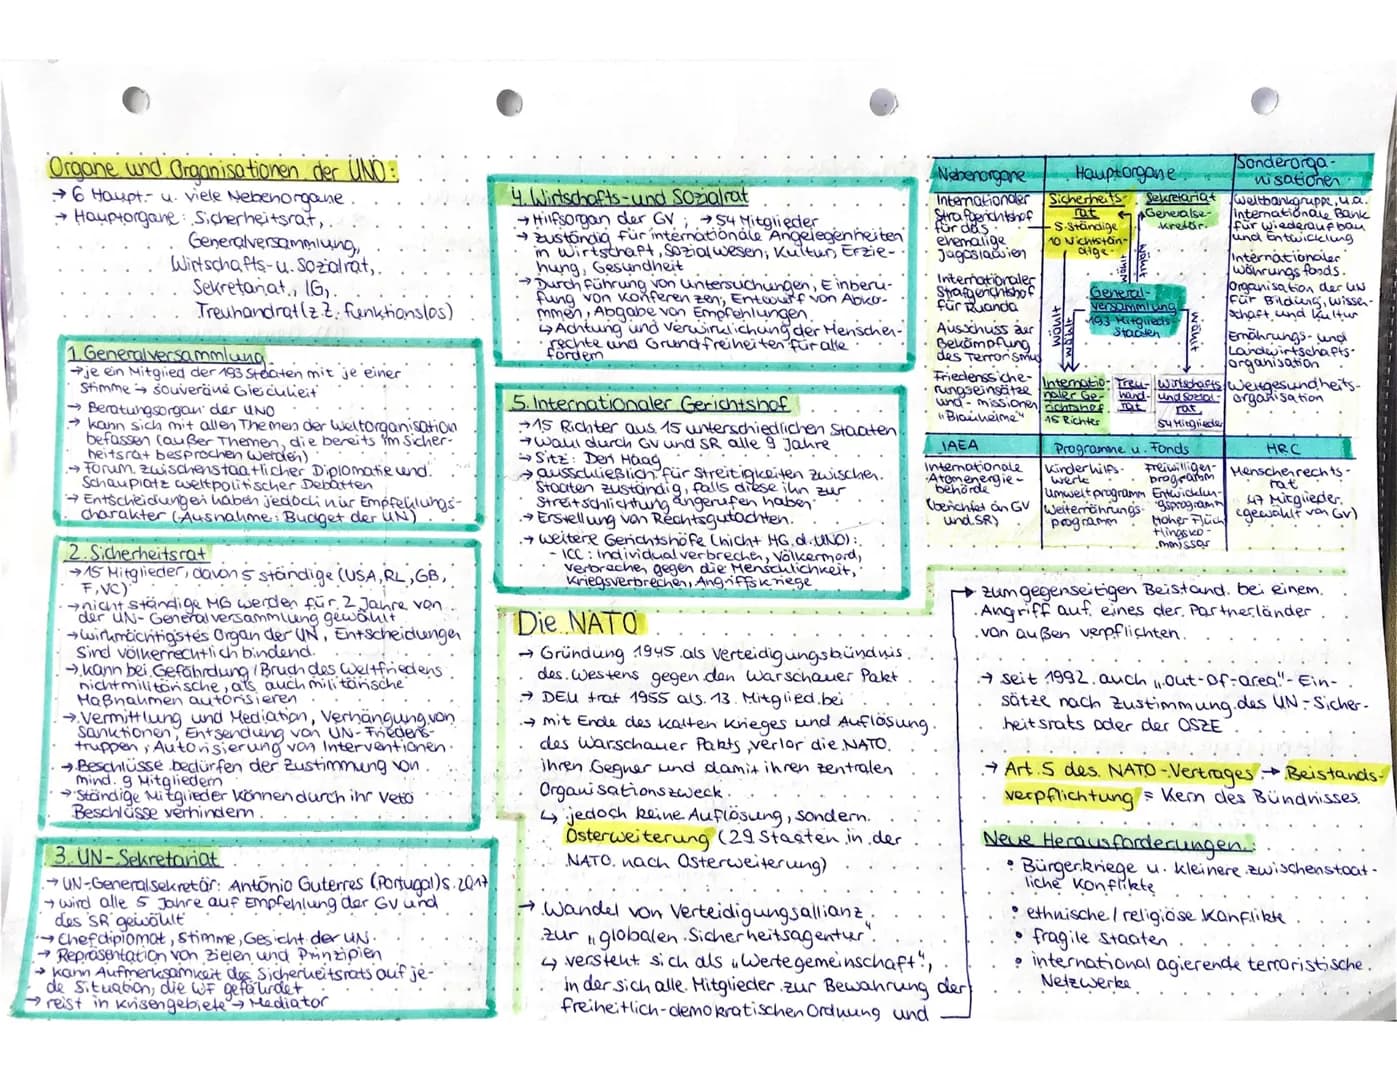 Organe und Organisationen der UNO:
→ 6 Haupt- u. viele Nebenorgane
→ Hauptorgane: Sicherheitsrat,
Generalversammlung,
Wirtschafts- u. Sozialrat,
Sekretariat, IG,
Treuhandrat (z.Z. funktionslos)
1. Generalversammlung
→ je ein Mitglied der 193 Staaten mit je einer
Stimme → souveräne Gleichheit
→ Beratungsorgan der UNO
→ kann sich mit allen Themen der Weltorganisation
befassen (außer Themen, die bereits im Sicher-
heitsrat besprochen werden)
→ Forum zwischenstaatlicher Diplomatie und
Schauplatz weltpolitischer Debatten
→ Entscheidungen haben jedoch nur Empfehlungs-
charakter (Ausnahme: Budget der UN)
2. Sicherheitsrat
→ 15 Mitglieder, davon 5 ständige (USA, RL, GB,
F, VC)
→ nicht ständige MG werden für 2 Jahre von
der UN-Generalversammlung gewählt
→ wirkmächtigstes Organ der UN, Entscheidungen
sind völkerrechtlich bindend
→ kann bei Gefährdung / Bruch des Weltfriedens
nichtmilitärische, als auch militärische
Maßnahmen autorisieren
→ Vermittlung und Mediation, Verhängung von
Sanktionen, Entsendung von UN-Friedens-
truppen, Autorisierung von Interventionen
→ Beschlüsse bedürfen der Zustimmung von
mind. 9 Mitgliedern
→ Ständige Mitglieder können durch ihr Veto
Beschlüsse verhindern
3. UN-Sekretariat
→ UN-Generalsekretär: António Guterres (Portugal) s. 2017
→ wird alle 5 Jahre auf Empfehlung der GV und
des SR gewählt
→ Chefdiplomat, Stimme, Gesicht der UN
→ Repräsentation von Zielen und Prinzipien
→ kann Aufmerksamkeit des Sicherheitsrats auf je-
de Situation, die WF gefährdet
→ reist in Krisengebiete → Mediator
4. Wirtschafts- und Sozialrat
→ Hilfsorgan der GV ; → 54 Mitglieder
→ zuständig für internationale Angelegenheiten
in Wirtschaft, Sozialwesen, Kultur, Erzie-
hung, Gesundheit
→ Durchführung von Untersuchungen, Einberu-
fung von Konferenzen, Entwurf von Abko-
mmen, Abgabe von Empfehlungen
↳ Achtung und Verwirklichung der Menschen-
rechte und Grundfreiheiten für alle
fördern
5. Internationaler Gerichtshof
→ 15 Richter aus 15 unterschiedlichen Staaten
→ Wahl durch GV und SR alle 9 Jahre
→ Sitz: Den Haag
→ ausschließlich für Streitigkeiten zwischen
Staaten zuständig, falls diese ihn zur
Streitschlichtung angerufen haben
→ Erstellung von Rechtsgutachten
→ weitere Gerichtshöfe (nicht HG. d. UNO):
- ICC: Individualverbrechen, Völkermord,
Verbrechen gegen die Menschlichkeit,
Kriegsverbrechen, Angriffskriege
Die NATO
→ Gründung 1945 als Verteidigungsbündnis
des Westens gegen den Warschauer Pakt
→ DEU trat 1955 als 13. Mitglied bei
→ mit Ende des Kalten Krieges und Auflösung
des Warschauer Pakts, verlor die NATO
ihren Gegner und damit ihren zentralen
Organisationszweck
↳ jedoch keine Auflösung, sondern
Osterweiterung (29 Staaten in der
NATO nach Osterweiterung)
→ Wandel von Verteidigungsallianz
zur „globalen Sicherheitsagentur"
↳ versteht sich als „Wertegemeinschaft",
in der sich alle Mitglieder zur Bewahrung der
freiheitlich-demokratischen Ordnung und
Nebenorgane
Internationaler
Strafgerichtshof
für das
ehemalige
Jugoslawien
Internationaler
Strafgerichtshof
für Ruanda
Ausschuss zur
Bekämpfung
des Terrorismus
Friedenssiche-
rungseinsätze
und -missionen
"Blauhelme"
Hauptorgane
Sicherheits-
rat
5 Ständige
10 Nichtstän-
dige
Sekretariat
Generalse-
kretär
wählt
wählt
General-
versammlung
193 Mitglieds-
staaten
wählt
wählt
wählt
Internatio-
naler Ge-
richtshof
15 Richter
Treu-
hand-
rat
Wirtschafts-
und Sozial-
rat
54 Mitglieder
Sonderorga-
nisationen
Weltbankgruppe, u.a.
Internationale Bank
für Wiederaufbau
und Entwicklung
Internationaler
Währungsfonds
Organisation der UN
für Bildung, Wissen-
schaft und Kultur
Ernährungs- und
Landwirtschafts-
organisation
Weltgesundheits-
organisation
IAEA
Internationale
Atomenergie-
behörde
(berichtet an GV
und SR)
Programme u. Fonds
Kinderhilfs-
werk
Umweltprogramm
Welternährungs-
programm
Freiwilligen-
programm
Entwicklun-
gsprogramm
Hoher Flüch-
tlingsko-
mmissar
HRC
Menschenrechts-
rat
47 Mitglieder
(gewählt von GV)
→ zum gegenseitigen Beistand bei einem
Angriff auf eines der Partnerländer
von außen verpflichten
→ seit 1992 auch „out-of-area"-Ein-
sätze nach Zustimmung des UN-Sicher-
heitsrats oder der OSZE
→ Art. 5 des NATO-Vertrages → Beistands-
verpflichtung = Kern des Bündnisses
Neue Herausforderungen:
• Bürgerkriege u. kleinere zwischenstaat-
liche Konflikte
• ethnische / religiöse Konflikte
• fragile Staaten
• international agierende terroristische
Netzwerke